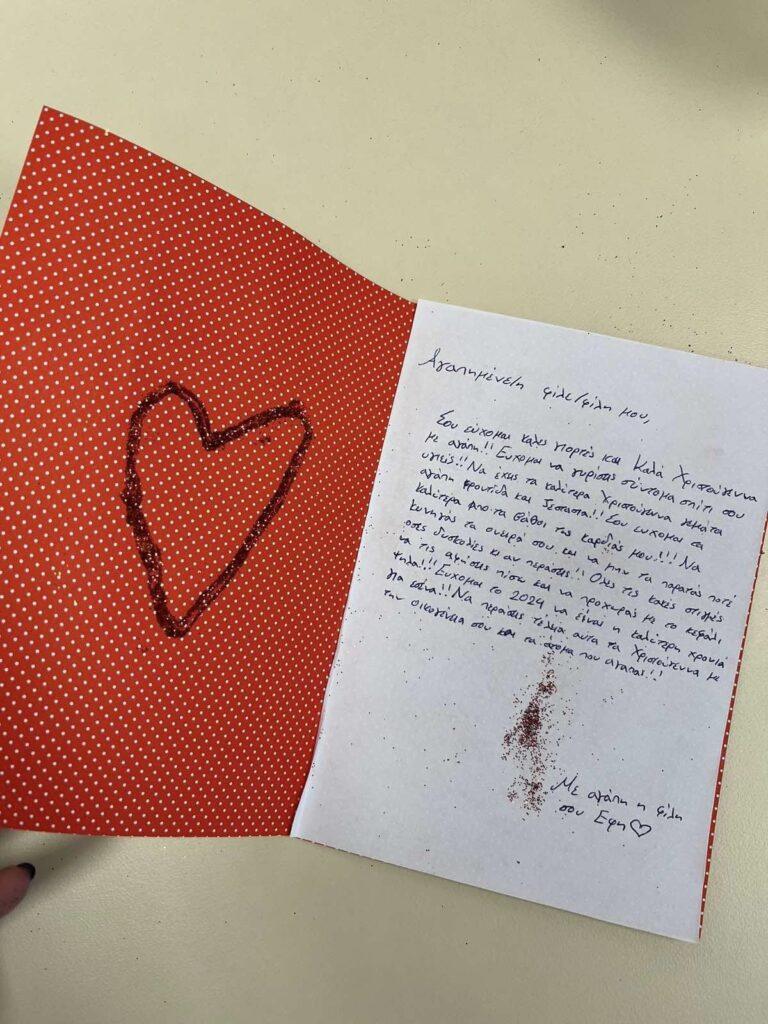 Αγαπημένε/η φίλε/φίλη μου,
Σου εύχομαι καλές γιορτές και Καλά Χριστούγεννα
με αγάπη!! Εύχομαι να γυρίσεις σύντομα σπίτι σου
υγιείς!! Να έχεις τα καλύτερα Χριστούγεννα γεμάτα
αγάπη φροντίδα και ζεστασιά!! Σου εύχομαι τα
καλύτερα από τα βάθοι της καρδιάς μου!!! Να
κυνηγάς τα όνειρά σου και να μην τα παρατάς ποτέ
όσες δυσκολίες κι αν περάσεις!! Όλες τις κακές στιγμές
να τις αφήσεις πίσω και να προχωράς με το κεφάλι
ψηλά!!! Εύχομαι το 2024 να είναι η καλύτερη χρονιά
για εσένα!! Να περάσεις τέλεια αυτά τα Χριστούγεννα με
την οικογένεια σου και τα άτομα που αγαπάς!!
Με αγάπη η φίλη
σου Έφη